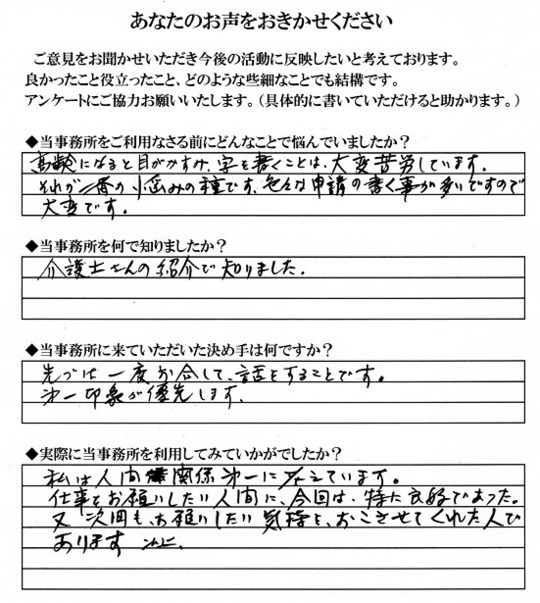 あなたのお声をおきかせください
ご意見をお聞かせいただき今後の活動に反映したいと考えております。
良かったこと役立ったこと、どのような些細なことでも結構です。
アンケートにご協力お願いいたします。（具体的に書いていただけると助かります。）
◆当事務所をご利用なさる前にどんなことで悩んでいましたか？
高齢になると目がかすみ、字を書くことは、大変苦労しています。
それが一番の小悩みの種です、色んな申請の書く事が多いですので
大変です。
◆当事務所を何で知りましたか？
介護士さんの紹介で知りました。
◆当事務所に来ていただいた決め手は何ですか？
先づは一度お合して、話をすることです。
第一印象が優先します。
◆実際に当事務所を利用してみていかがでしたか？
私は人間関係第一に考えています。
仕事をお願いしたい人間に、今回は、特に良好であった。
又 次回も、お願いしたい気持を、おこさせてくれた人で
あります 以上、